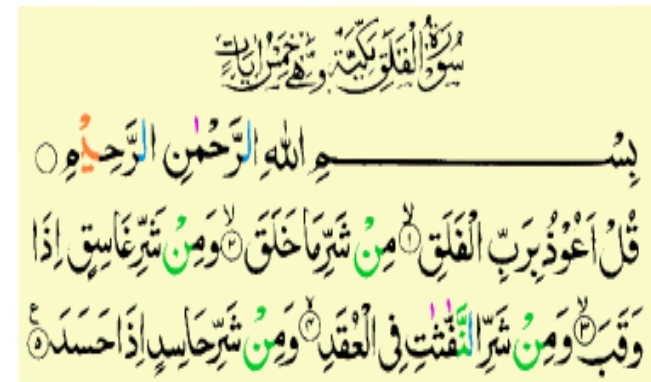 سُوْرَةُ الْفَلَقِ مَكِّيَّةٌ وَّهِيَ خَمْسُ اٰيَاتٍ
بِسْــــــــــــــــمِ اللهِ الرَّحْمٰنِ الرَّحِيْمِ ○
قُلْ اَعُوْذُ بِرَبِّ الْفَلَقِ ۙ﴿۱﴾ مِنْ شَرِّ مَا خَلَقَ ۙ﴿۲﴾ وَمِنْ شَرِّ غَاسِقٍ اِذَا
وَقَبَ ۙ﴿۳﴾ وَمِنْ شَرِّ النَّفّٰثٰتِ فِى الْعُقَدِ ۙ﴿۴﴾ وَمِنْ شَرِّ حَاسِدٍ اِذَا حَسَدَ ﴿۵﴾ ع